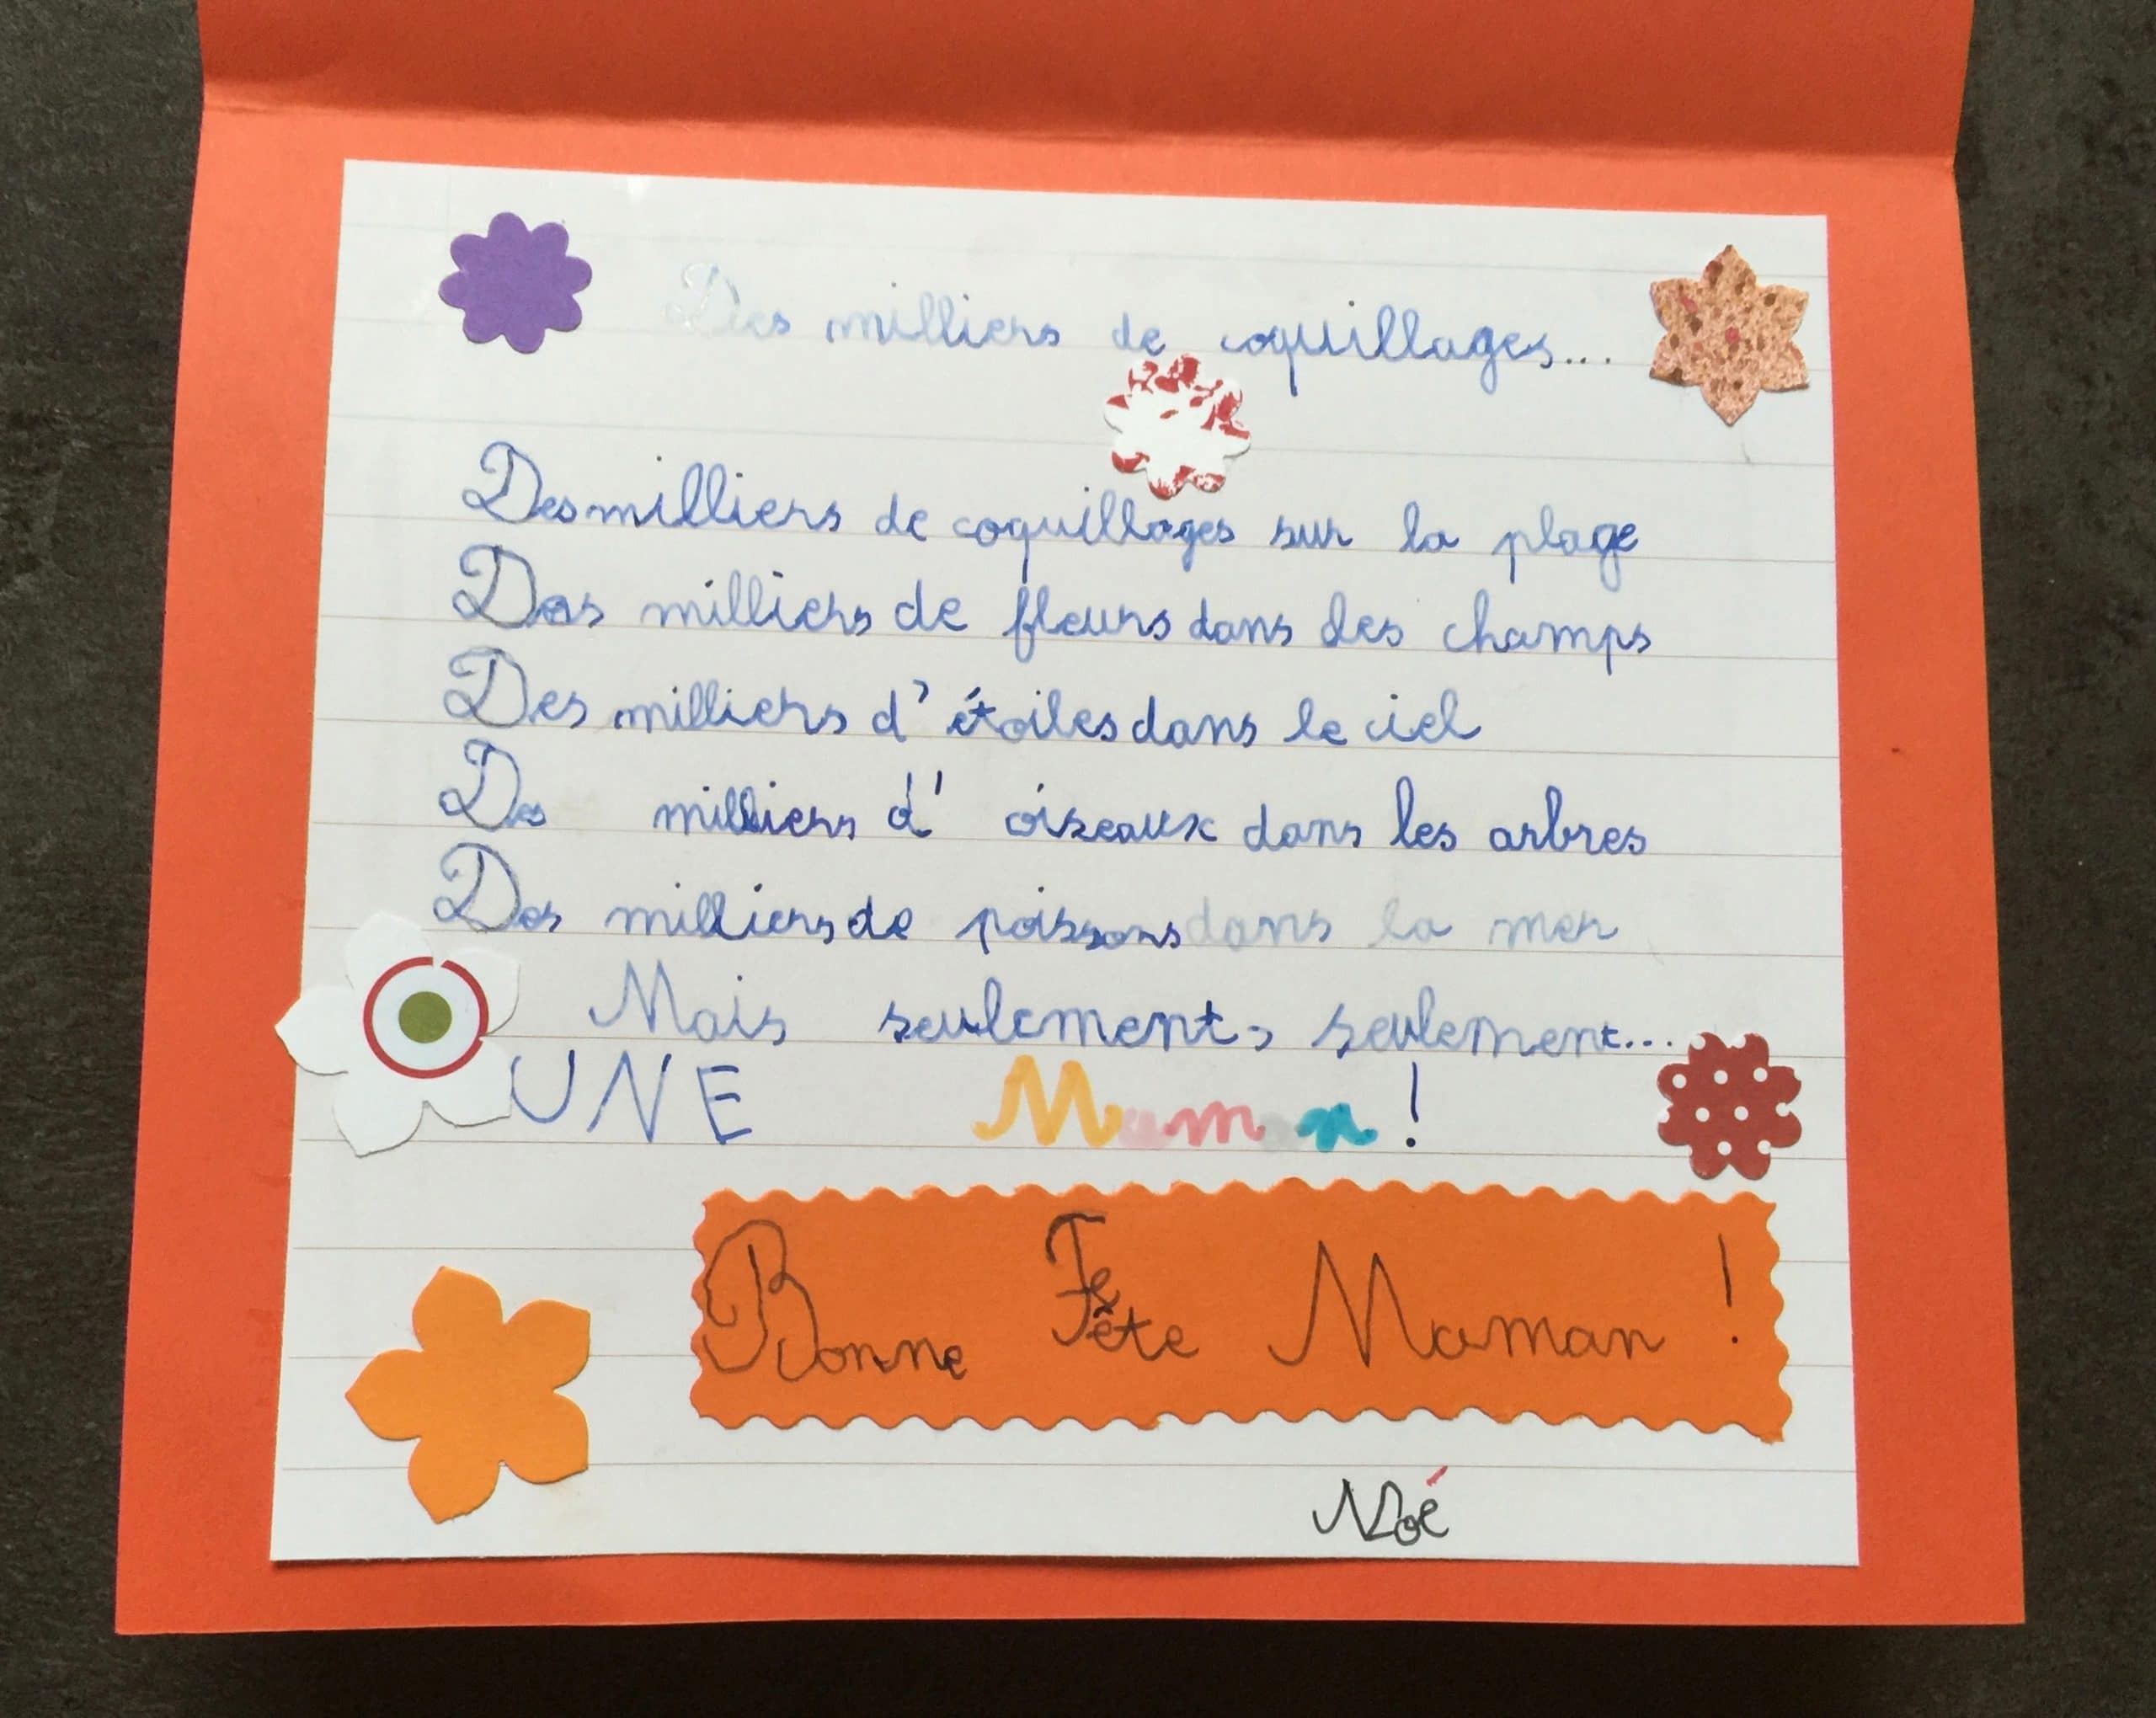 Des milliers de coquillages...
Des milliers de coquillages sur la plage
Des milliers de fleurs dans des champs
Des milliers d'étoiles dans le ciel
Des milliers d'oiseaux dans les arbres
Des milliers de poissons dans la mer
Mais seulement, seulement...
UNE Maman !
Bonne Fête Maman !
Noé